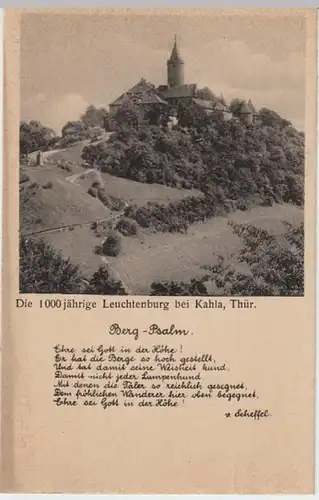 Die 1000jährige Leuchtenburg bei Kahla, Thür.
Berg-Psalm.
Ehre sei Gott in der Höhe!
Er hat die Berge so hoch gestellt,
Und tat damit seine Weisheit kund,
Damit nicht jeder Lumpenhund
Mit denen die Täler so reichlich gesegnet,
Dem fröhlichen Wanderer hier oben begegnet,
Ehre sei Gott in der Höhe!
v. Scheffel.